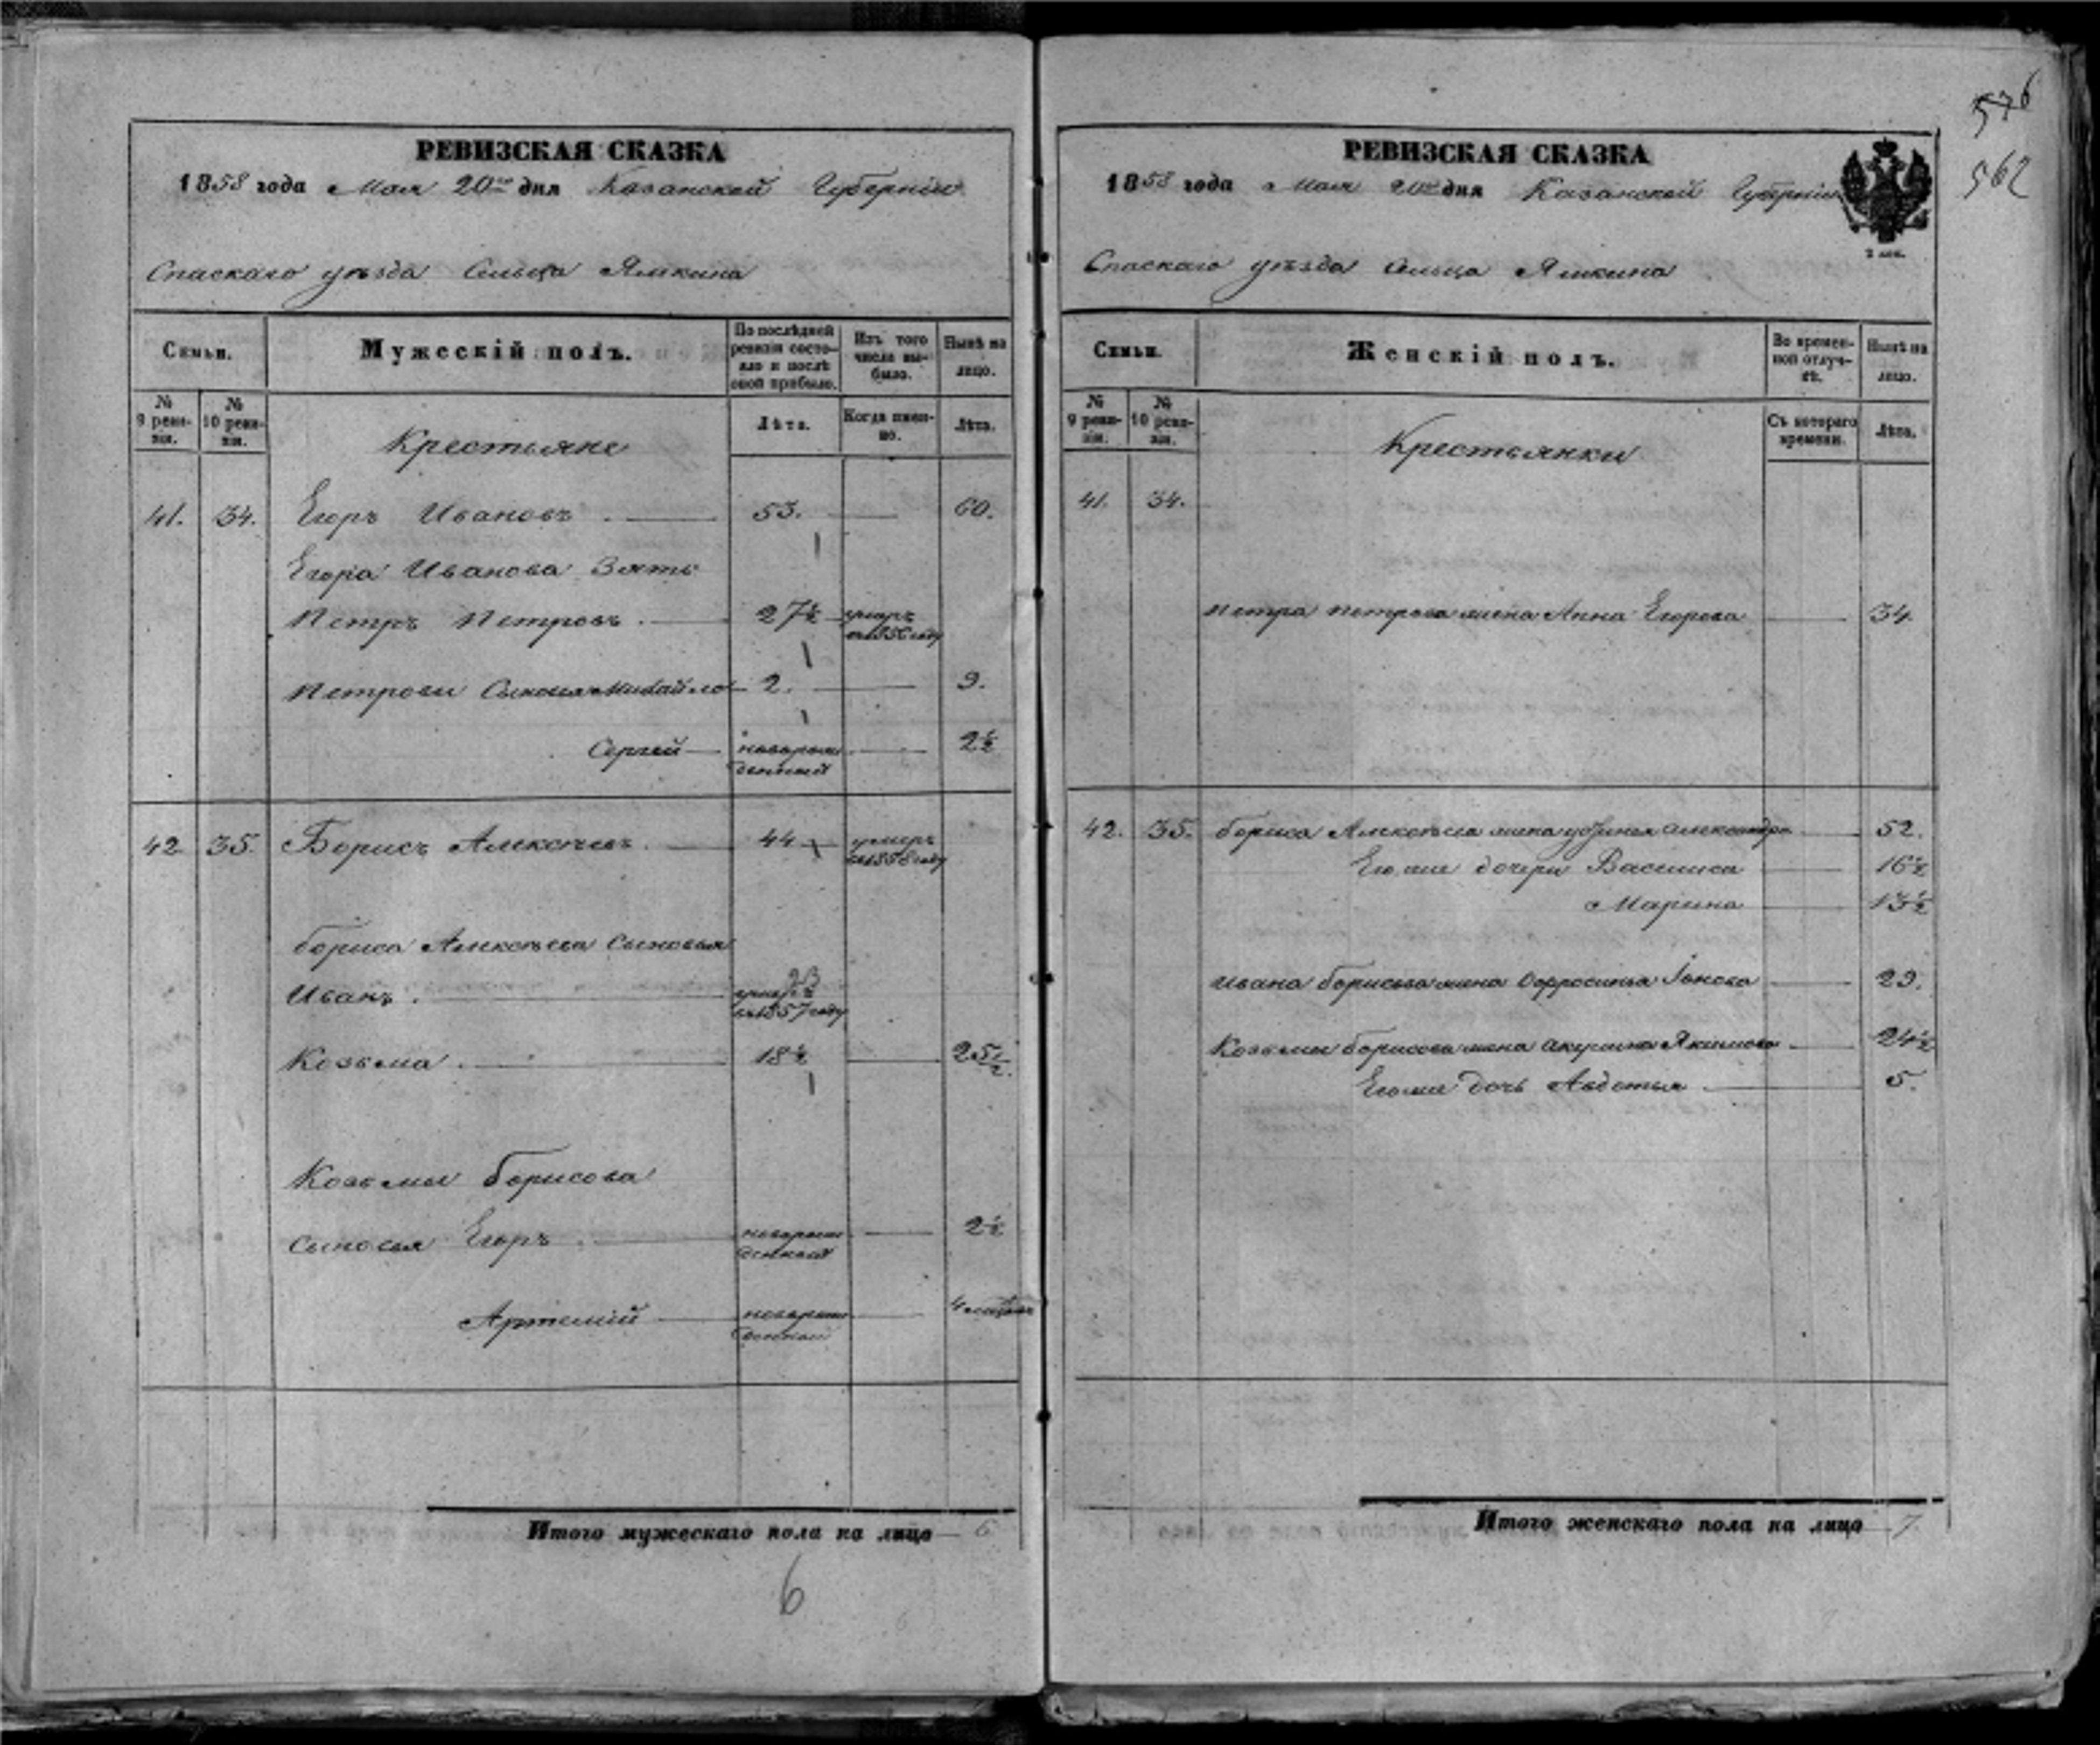 576
562
РЕВИЗСКАЯ СКАЗКА
1858 года Мая 20го дня Казанской Губерніи
Спаскаго уѣзда Сельца Ямкина
Семьи.
Мужескій полъ.
По послѣдней ревизіи состояло и послѣ оной прибыло.
Изъ того числа выбыло.
Нынѣ на лицо.
№ 9 ревизіи.
№ 10 ревизіи.
Крестьяне
Лѣта.
Когда именно.
Лѣта.
41. 34. Егоръ Ивановъ 53. 60.
Егора Иванова Зять
Петръ Петровъ 27½ умеръ въ 1856 году
Петровы Сыновья Михайло 2. 9.
Сергей новорожденный 2½
42 35. Борисъ Алексѣевъ 44 умеръ въ 1858 году
Бориса Алексѣева Сыновья
Иванъ 23 умеръ въ 1857 году
Козьма 18½ 25½
Козьмы Борисова
сыновья Егоръ новорожденный 2½
Артемій новорожденный 4 месяцовъ
Итого мужескаго пола на лицо 6
6
РЕВИЗСКАЯ СКАЗКА
1858 года Мая 20го дня Казанской Губерніи
2 коп.
Спаскаго уѣзда Сельца Ямкина
Семьи.
Женскій полъ.
Во временной отлучкѣ.
Нынѣ на лицо.
№ 9 ревизіи.
№ 10 ревизіи.
Крестьянки
Съ котораго времени.
Лѣта.
41. 34.
Петра Петрова жена Анна Егорова 34.
42. 35. Бориса Алексѣева жена Устинья Александрова 52.
Его же дочери Василиса 16½
Марина 13½
Ивана Борисова жена Ефросинья Іонова 29.
Козьмы Борисова жена Акулина Якимова 24½
Его же дочь Авдотья 5.
Итого женскаго пола на лицо 7